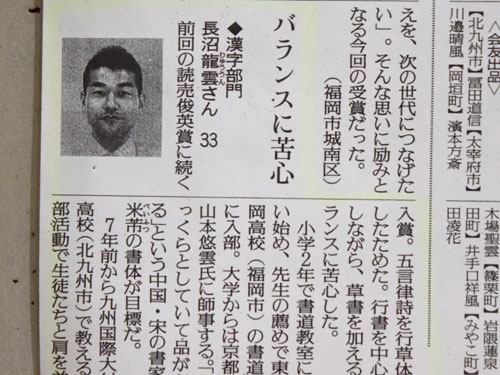 【北九州市】冨田道信【太宰府市】
川邉晴風【岡垣町】濱本万斎
木場聖雲【篠栗町】岩隈蓮泉
田町】井手口祥風【みやこ町】
田凌花
えを、次の世代につなげた
い」。そんな思いに励みと
なる今回の受賞だった。
(福岡市城南区)
バランスに苦心
◆漢字部門
長沼龍雲さん 33
前回の読売俊英賞に続く
入賞。五言律詩を行草体
したためた。行書を中心
しながら、草書を加える
ランスに苦心した。
小学2年で書道教室に
い始め、先生の薦めで東
岡高校(福岡市)の書道
に入部。大学からは京都
山本悠雲氏に師事する。「
っくらとしていて品が
る」という中国・宋の書家
米芾の書体が目標だ。
7年前から九州国際大
高校(北九州市)で教える
部活動で生徒たちと肩を